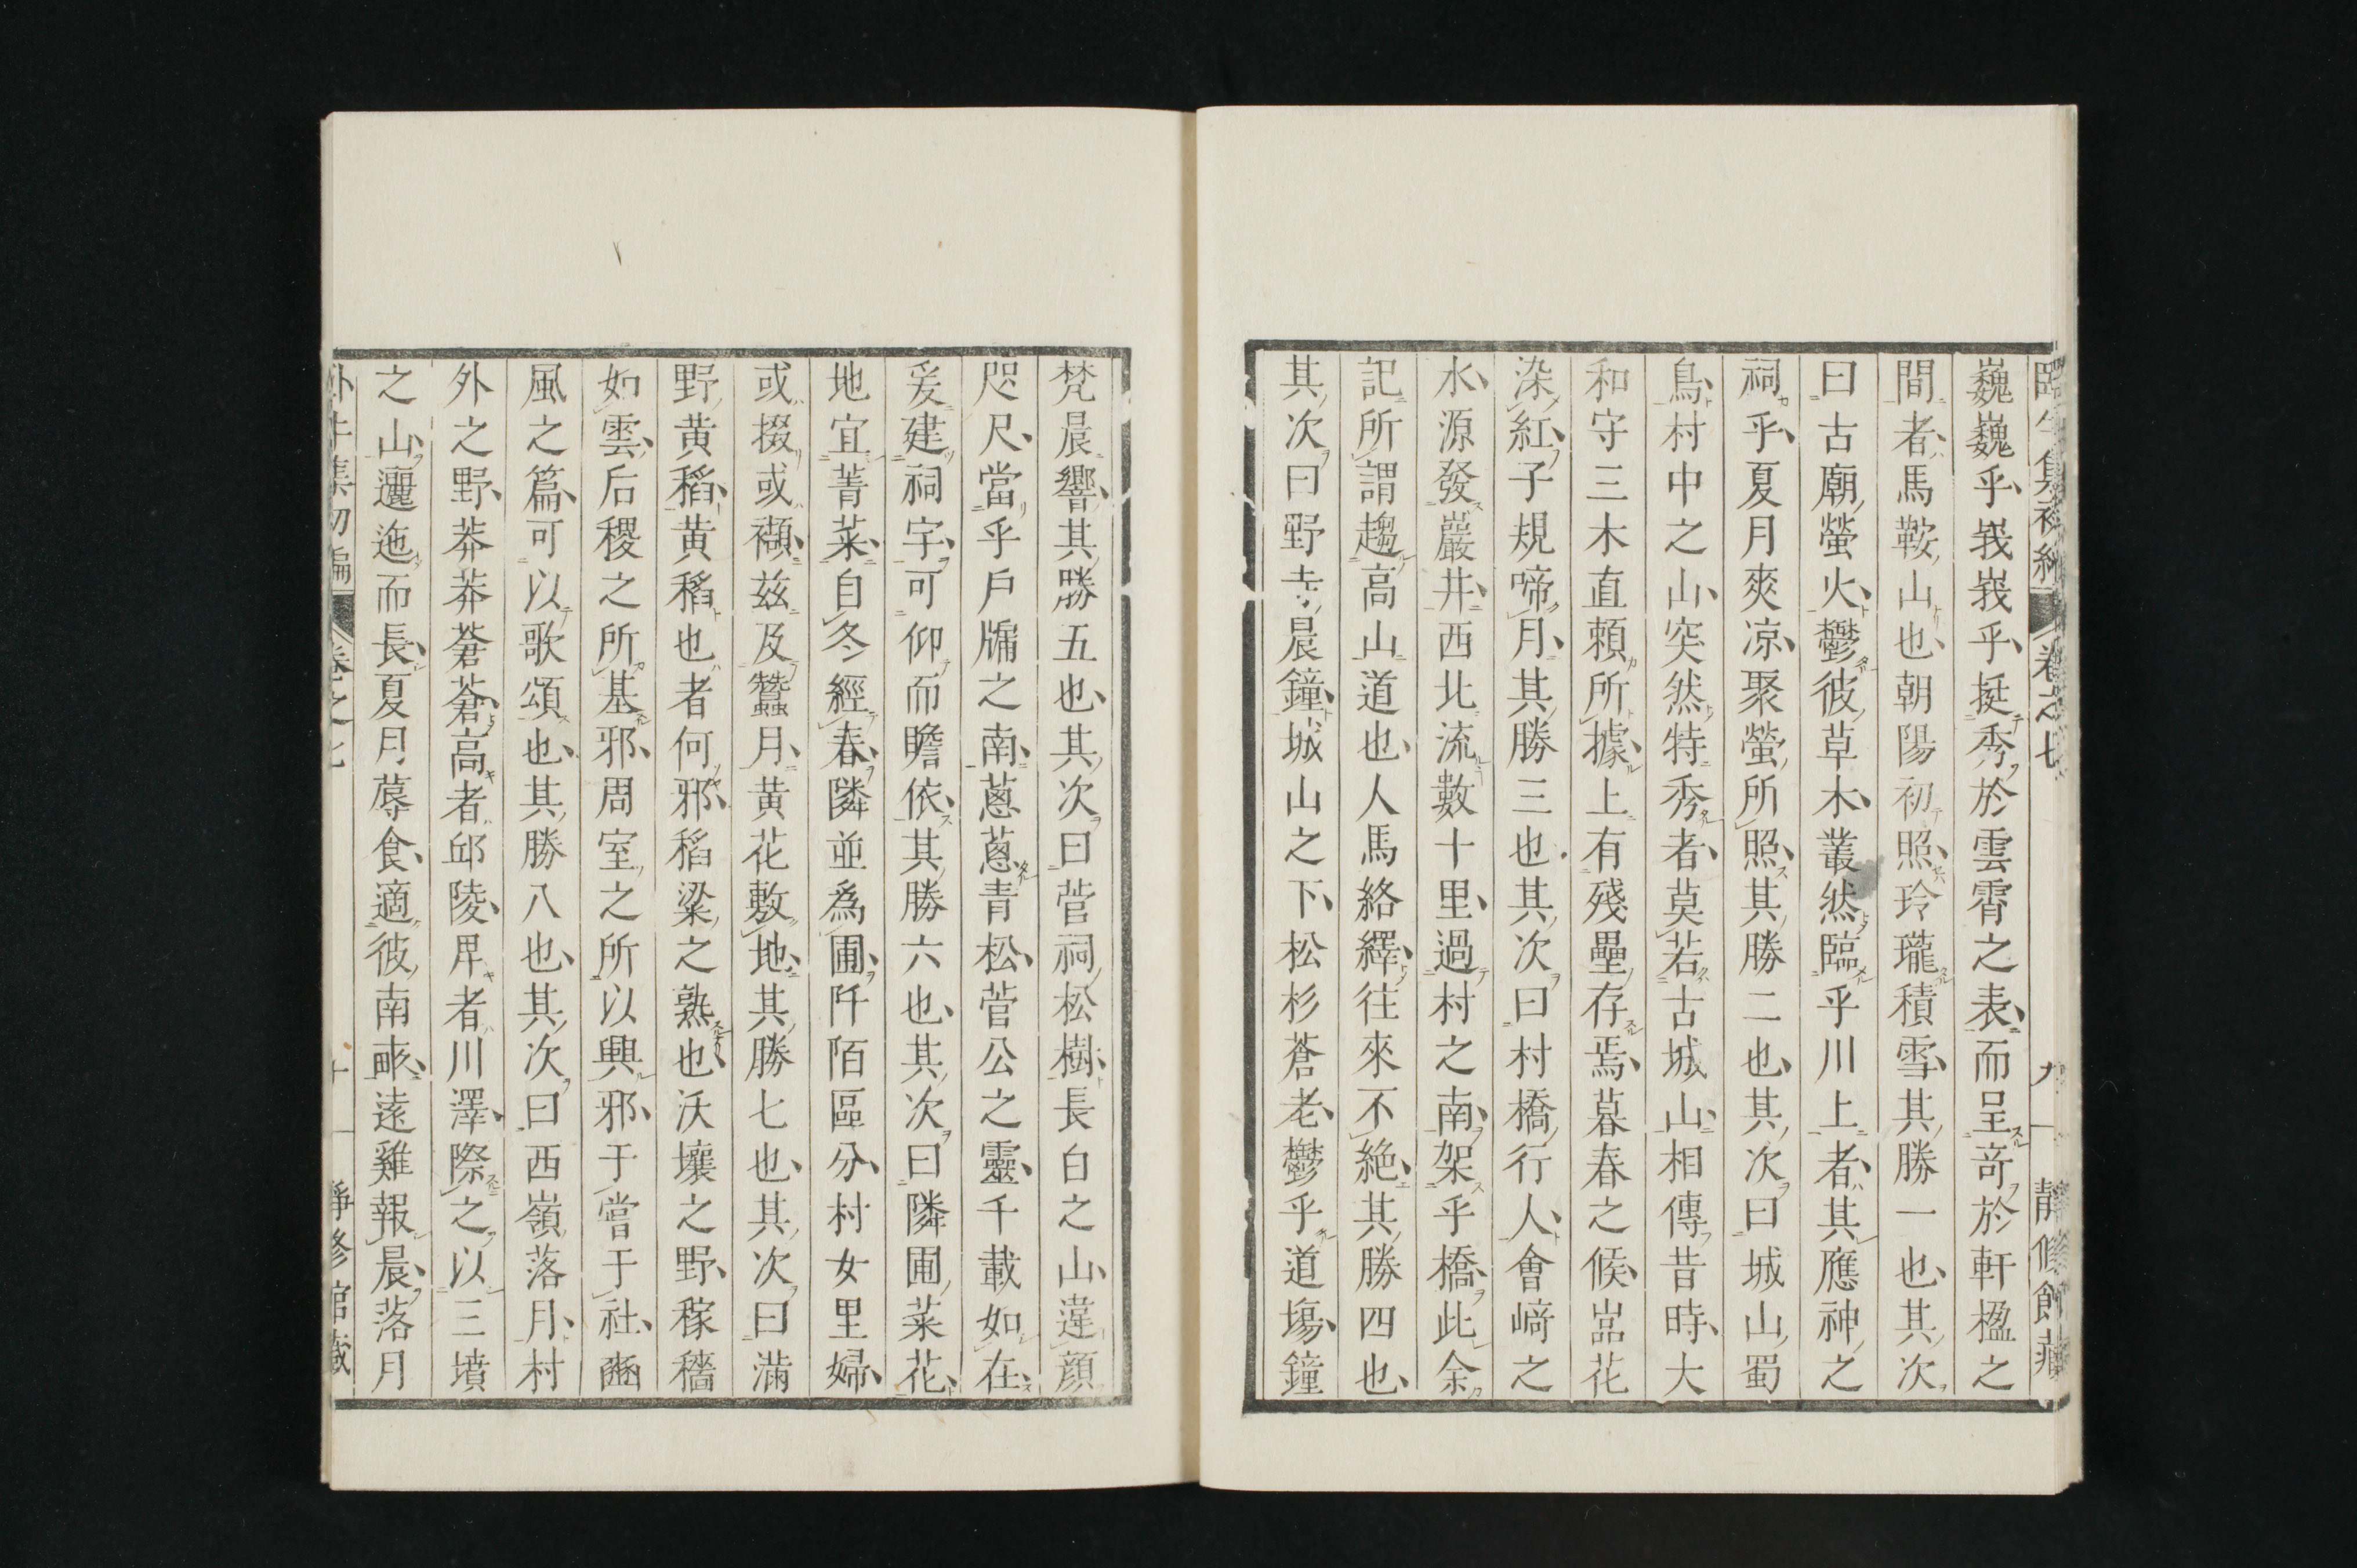 臥牛集初編 卷之七 九 靜修館藏
巍巍乎、峩峩乎、挺秀於雲霄之表、而呈竒於軒楹之
間者、馬鞍山也、朝陽初照、玲瓏積雪、其勝一也、其次
曰古廟螢火、鬱彼草木、叢然臨乎川上者、其應神之
祠乎、夏月爽凉、聚螢所照、其勝二也、其次曰城山蜀
鳥、村中之山、突然特秀者、莫若古城山、相傳昔時、大
和守三木直頼所據、上有殘壘存焉、暮春之候、嵓花
染紅、子規啼月、其勝三也、其次曰村橋行人、會﨑之
水、源發巖井、西北流數十里、過村之南、架乎橋、此余
記所謂趨高山道也、人馬絡繹、往來不絶、其勝四也、
其次曰野寺晨鐘、城山之下、松杉蒼老、鬱乎道塲、鐘
梵晨響、其勝五也、其次曰菅祠松樹、長白之山、違顔
咫尺、當乎戶牖之南、蔥蔥青松、菅公之靈、千載如在、
爰建祠宇、可仰而瞻依、其勝六也、其次曰隣圃菜花、
地宜菁菜、自冬經春、隣並爲圃、阡陌區分、村女里婦、
或掇或襭、茲及蠶月、黄花敷地、其勝七也、其次曰滿
野黄稻、黄稻也者何邪、稻粱之熟也、沃壤之野、稼穡
如雲、后稷之所基邪、周室之所以興邪、于嘗于社、豳
風之篇、可以歌頌也、其勝八也、其次曰西嶺落月、村
外之野、莽莽蒼蒼、高者邱陵、卑者川澤、際之以三墳
之山、邐迤而長、夏月蓐食、適彼南畝、遠雞報晨、落月
臥牛集初編 卷之七 十 靜修館藏